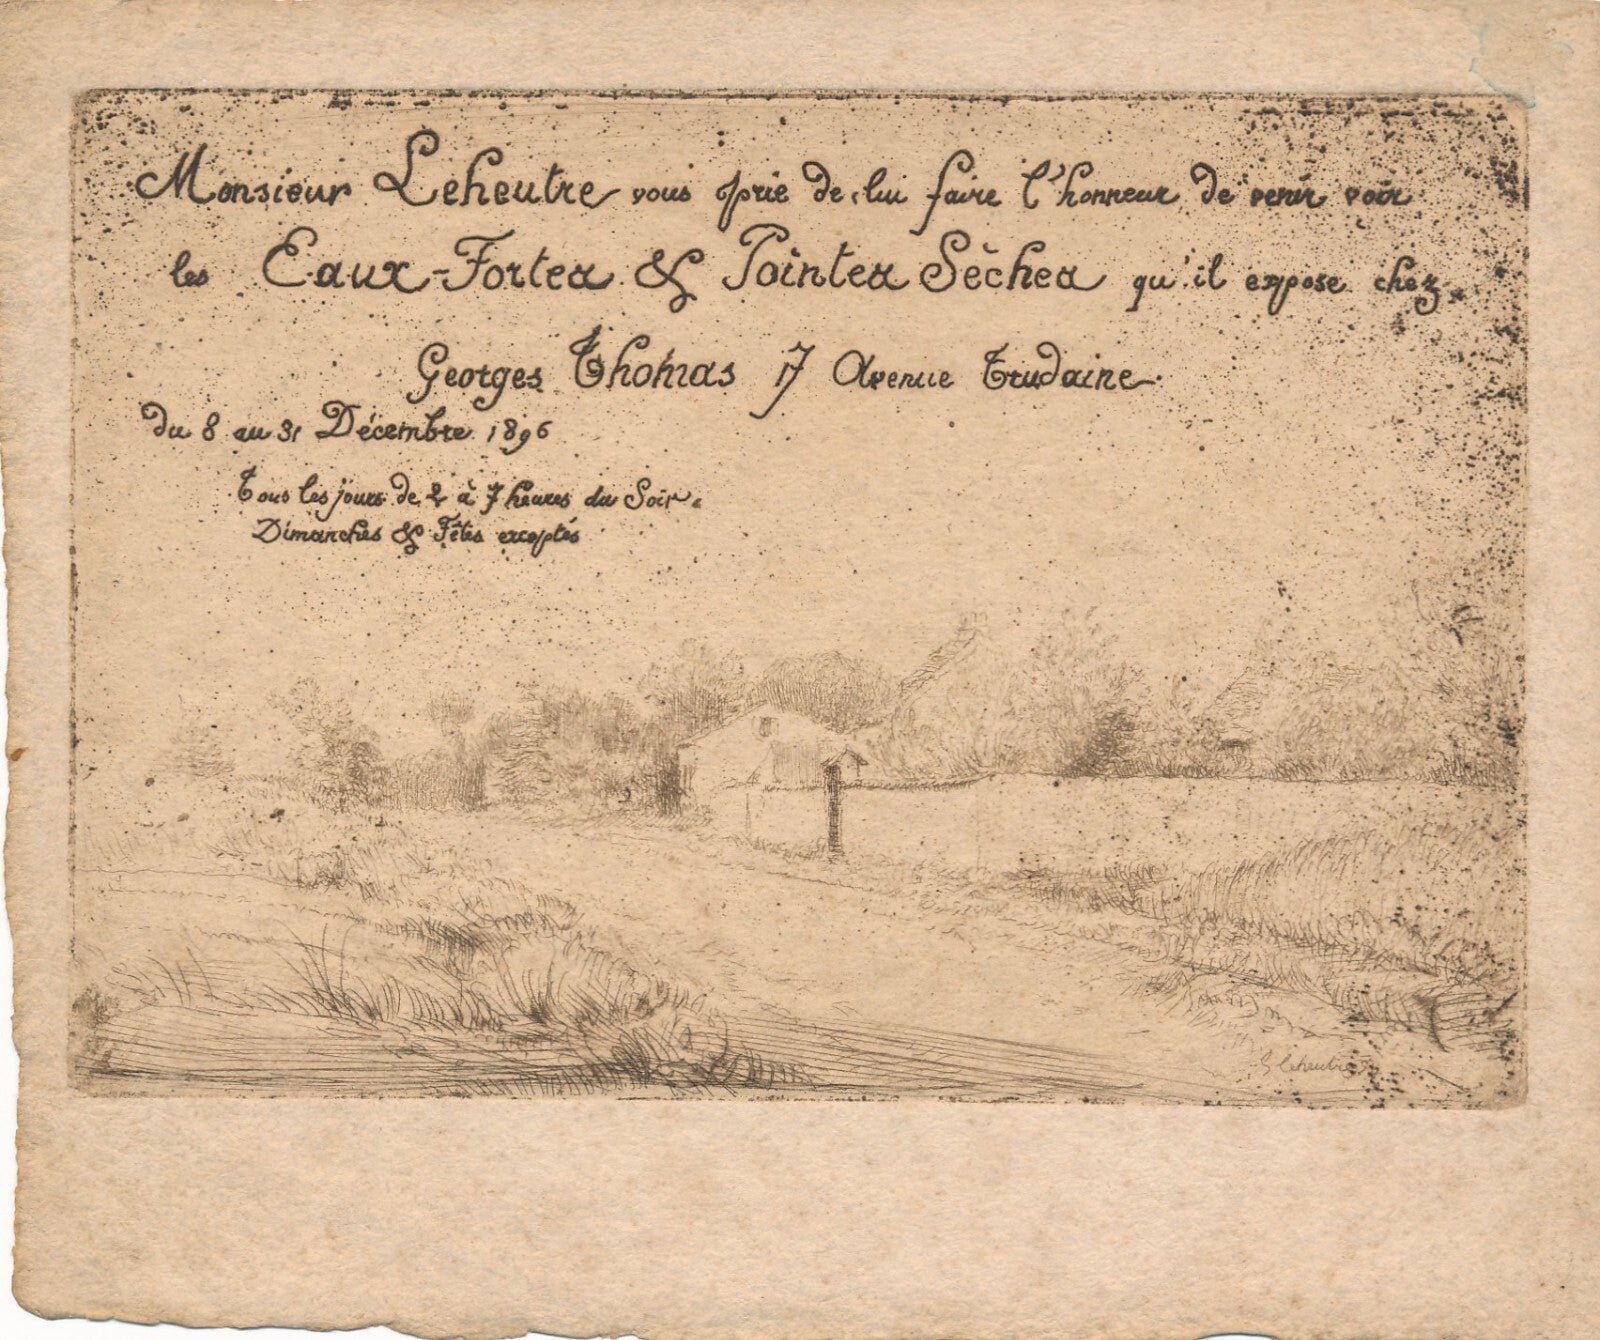 Monsieur Leheutre vous prie de lui faire l'honneur de venir voir
les Eaux-Fortes & Pointes Sèches qu'il expose chez
Georges Thomas 17 Avenue Trudaine
du 8 au 31 Décembre 1896
Tous les jours de 2 à 7 heures du Soir.
Dimanches & Fêtes exceptés
G Leheutre